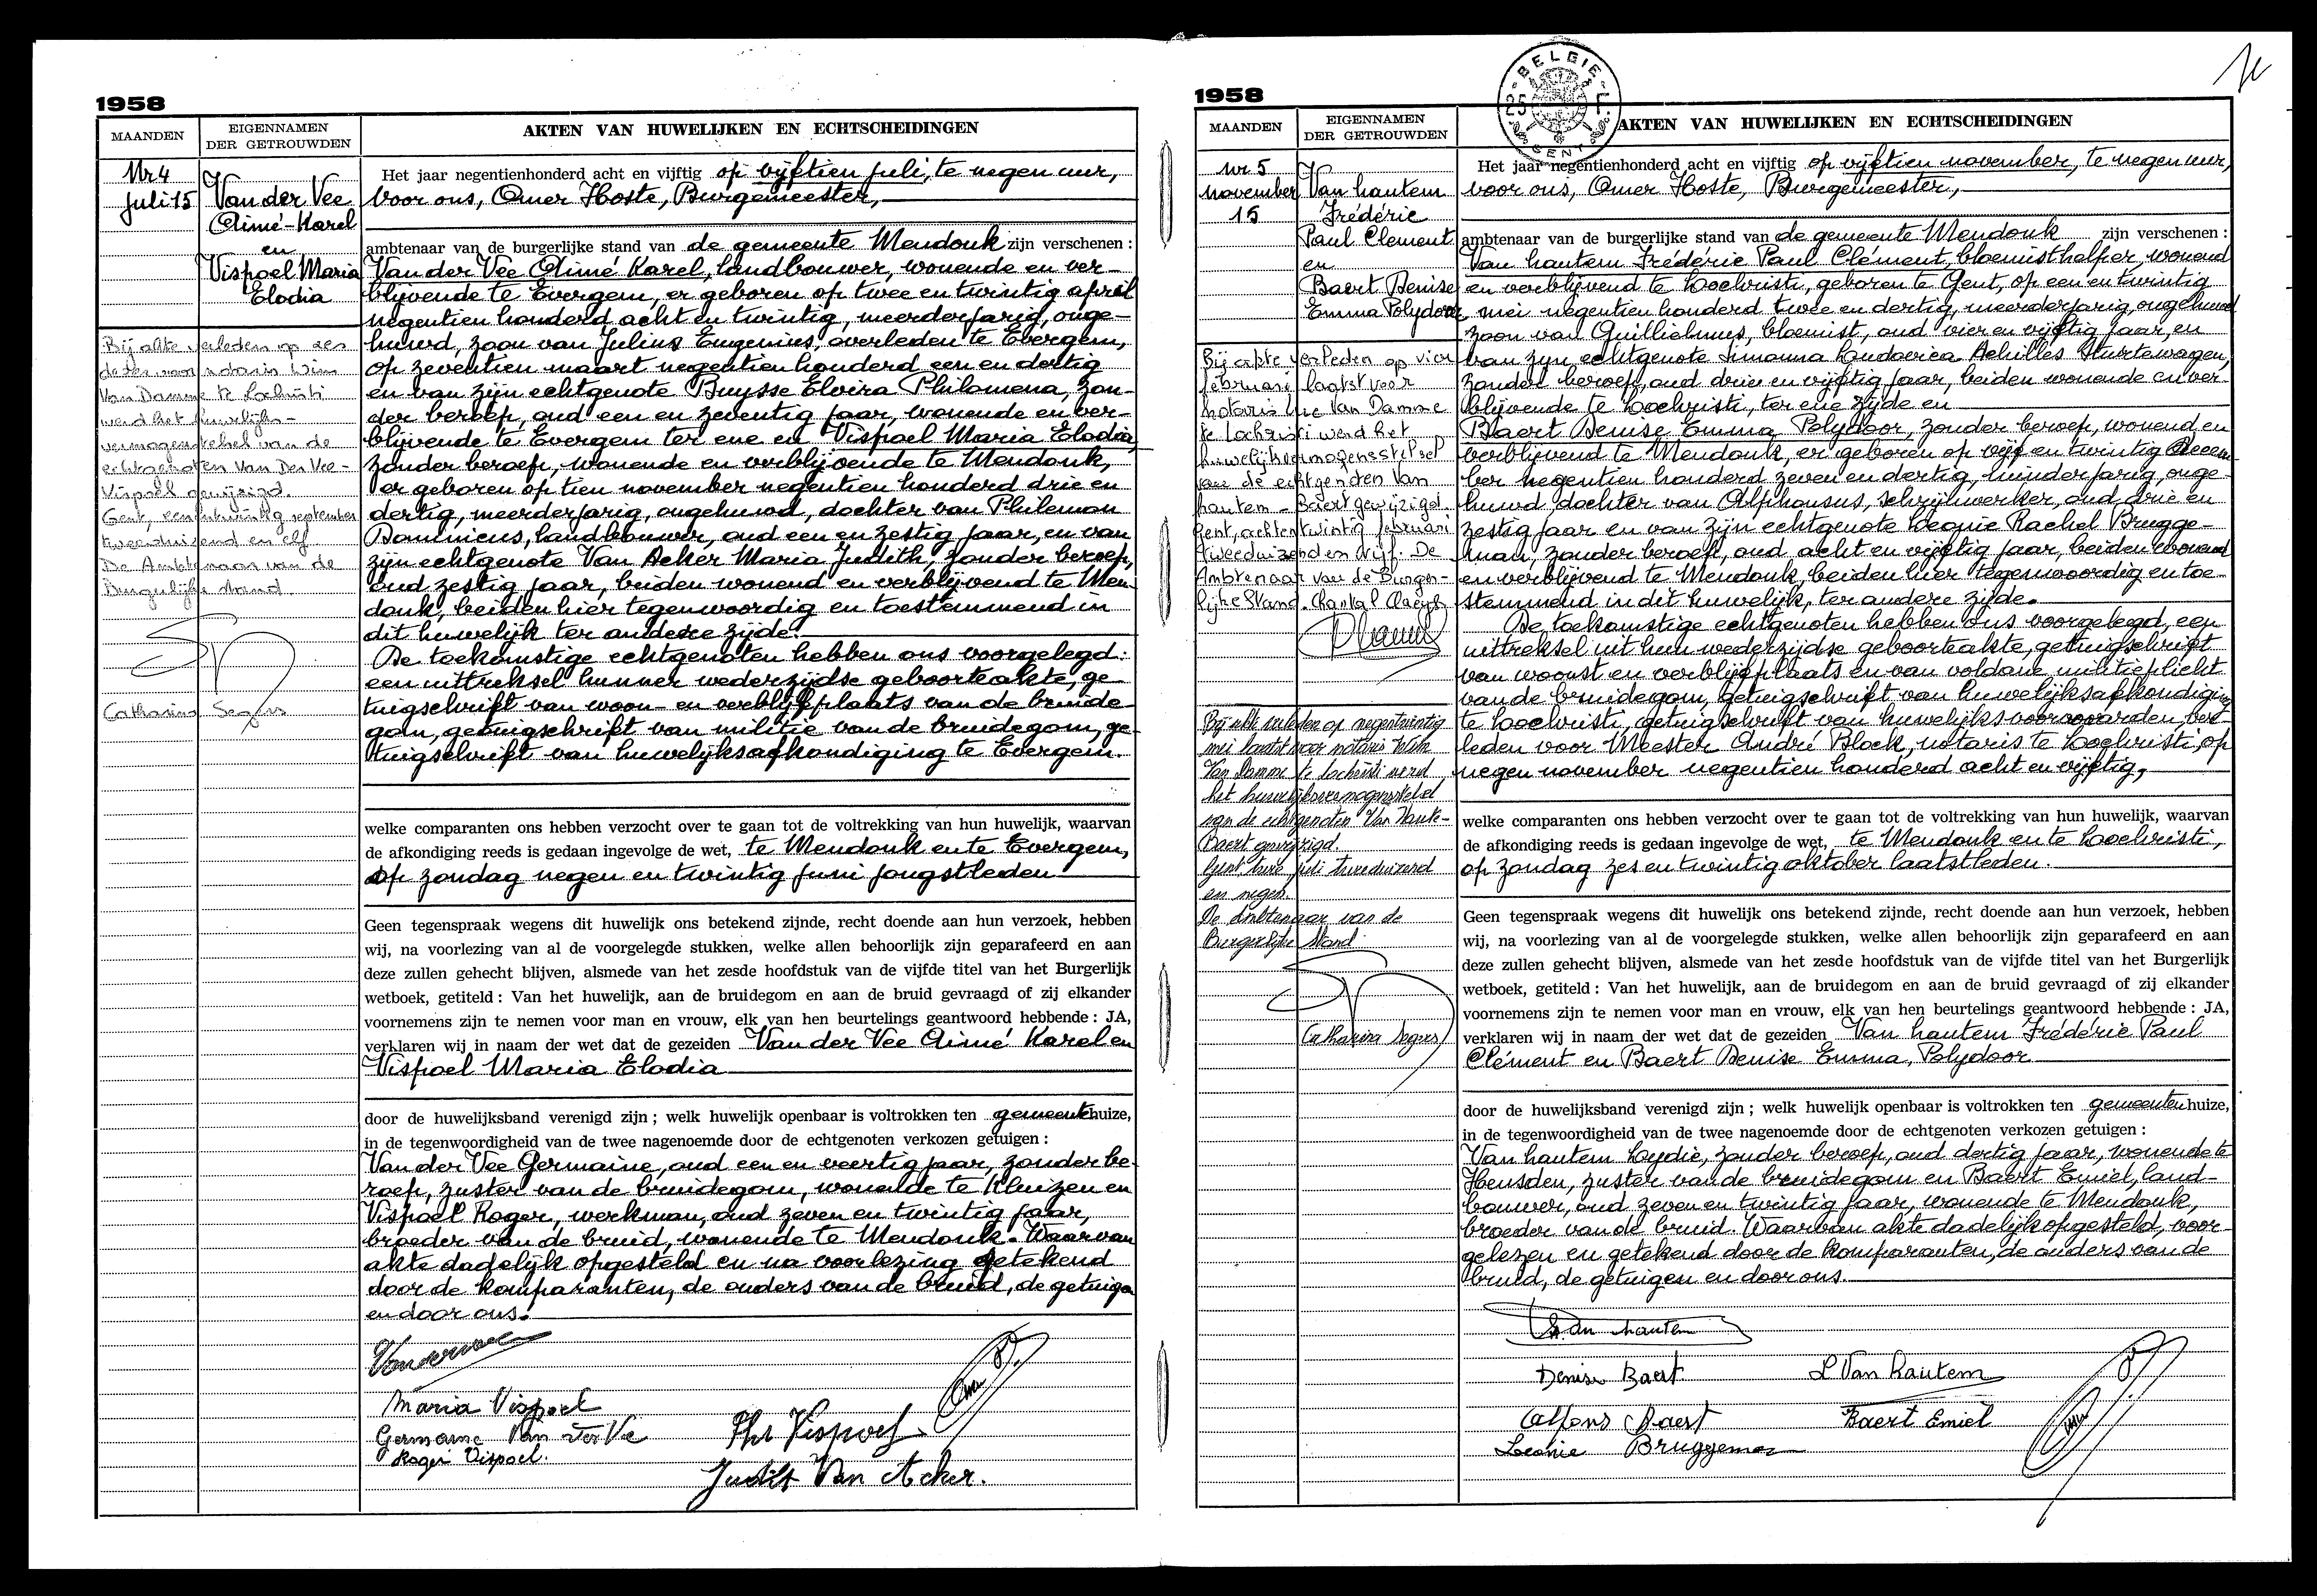 1958
MAANDEN
EIGENNAMEN
DER GETROUWDEN
AKTEN VAN HUWELIJKEN EN ECHTSCHEIDINGEN
Nr 4
juli 15
Van der Vee
Aimé-Karel
en
Vispoel Maria
Elodia
Bij akte verleden op een
Van Damme te Lochristi
werd het huwelijks-
vermogensstelsel van de
echtgenoten Van Der Vee-
Vispoel gewijzigd.
Gent, eenentwintig september
tweeduizend en elf
De Ambtenaar van de
Burgerlijke stand
Catharina Segers
Het jaar negentienhonderd acht en vijftig op vijftien juli, te negen uur,
voor ons, Omer Hoste, Burgemeester,
ambtenaar van de burgerlijke stand van de gemeente Mendonk zijn verschenen :
Van der Vee Aimé Karel, landbouwer, wonende en ver-
blijvende te Evergem, er geboren op twee en twintig april
negentien honderd acht en twintig, meerderjarig, onge-
huwd, zoon van Julius Eugenius, overleden te Evergem,
op zeventien maart negentien honderd een en dertig
en van zijn echtgenote Buysse Elvira Philomena, zon-
der beroep, oud een en zeventig jaar, wonende en ver-
blijvende te Evergem ter ene en Vispoel Maria Elodia,
zonder beroep, wonende en verblijvende te Mendonk,
er geboren op tien november negentien honderd drie en
dertig, meerderjarig, ongehuwd, dochter van Philemon
Dominicus, landbouwer, oud een en zestig jaar, en van
zijn echtgenote Van Acker Maria Judith, zonder beroep,
oud zestig jaar, beiden wonend en verblijvend te Men-
donk, beiden hier tegenwoordig en toestemmend in
dit huwelijk ter andere zijde.
De toekomstige echtgenoten hebben ons voorgelegd:
een uittreksel hunner wederzijdse geboorteakte, ge-
tuigschrift van woon- en verblijfplaats van de bruide
gom, getuigschrift van militie van de bruidegom, ge-
tuigschrift van huwelijksafkondiging te Evergem.
welke comparanten ons hebben verzocht over te gaan tot de voltrekking van hun huwelijk, waarvan
de afkondiging reeds is gedaan ingevolge de wet, te Mendonk en te Evergem,
op zondag negen en twintig juni jongstleden
Geen tegenspraak wegens dit huwelijk ons betekend zijnde, recht doende aan hun verzoek, hebben
wij, na voorlezing van al de voorgelegde stukken, welke allen behoorlijk zijn geparafeerd en aan
deze zullen gehecht blijven, alsmede van het zesde hoofdstuk van de vijfde titel van het Burgerlijk
wetboek, getiteld : Van het huwelijk, aan de bruidegom en aan de bruid gevraagd of zij elkander
voornemens zijn te nemen voor man en vrouw, elk van hen beurtelings geantwoord hebbende : JA,
verklaren wij in naam der wet dat de gezeiden Van der Vee Aimé Karel en
Vispoel Maria Elodia
door de huwelijksband verenigd zijn ; welk huwelijk openbaar is voltrokken ten gemeentehuize,
in de tegenwoordigheid van de twee nagenoemde door de echtgenoten verkozen getuigen :
Van der Vee Germaine, oud een en veertig jaar, zonder be-
roep, zuster van de bruidegom, wonende te Kluizen en
Vispoel Roger, werkman, oud zeven en twintig jaar,
broeder van de bruid, wonende te Mendonk. Waarvan
akte dadelijk opgesteld en na voorlezing getekend
door de komparanten, de ouders van de bruid, de getuigen
en door ons.
Maria Vispoel
Germaine Van der Vee
Roger Vispoel.
Phi Vispoel
Judith Van Acker.
1958
BELGIE
25 F.
GENT
MAANDEN
EIGENNAMEN
DER GETROUWDEN
AKTEN VAN HUWELIJKEN EN ECHTSCHEIDINGEN
nr 5
november
15
Van hautem
Frédéric
Paul Clement
en
Baert Denise
Emma Polydoor
Bij akte verleden op vier
februari laatst voor
notaris Luc Van Damme
te Lochristi werd het
huwelijksvermogensstelsel
van de echtgenoten Van
hautem - Baert gewijzigd.
Gent, achtentwintig februari
tweeduizend en vijf. De
Ambtenaar van de Burger-
lijke Stand.
Bij akte verleden op negentwintig
mei laatst voor notaris Wim
Van Damme te Lochristi werd
het huwelijksvermogensstelsel
van de echtgenoten Van Haute-
Baert gewijzigd.
Gent twee juli tweeduizend
en negen.
De Ambtenaar van de
Burgerlijke Stand
Catharina Segers
Het jaar negentienhonderd acht en vijftig op vijftien november, te negen uur,
voor ons, Omer Hoste, Burgemeester,
ambtenaar van de burgerlijke stand van de gemeente Mendonk zijn verschenen :
Van hautem Frédéric Paul Clément, bloemisthelper, wonend
en verblijvend te Loochristi, geboren te Gent, op een en twintig
mei negentien honderd twee en dertig, meerderjarig, ongehuwd
zoon van Guillielmus, bloemist, oud vier en vijftig jaar, en
van zijn echtgenote Simonna Ludovica Achilles Sturtewagen,
zonder beroep, oud drie en vijftig jaar, beiden wonende en ver-
blijvende te Loochristi, ter ene zijde en
Baert Denise Emma Polydoor, zonder beroep, wonend en
verblijvend te Mendonk, er geboren op vijf en twintig decem-
ber negentien honderd zeven en dertig, minderjarig, onge-
huwd dochter van Alphonsus, schrijnwerker, oud drie en
zestig jaar en van zijn echtgenote Leonie Rachel Brugge-
man, zonder beroep, oud acht en vijftig jaar, beiden wonend
en verblijvend te Mendonk, beiden hier tegenwoordig en toe-
stemmend in dit huwelijk, ter andere zijde.
De toekomstige echtgenoten hebben ons voorgelegd, een
uittreksel uit hun wederzijdse geboorteakte, getuigschrift
van woonst en verblijfplaats en van voldane militieplicht
van de bruidegom, getuigschrift van huwelijksafkondiging
te Loochristi, getuigschrift van huwelijksvoorwaarden, ver-
leden voor Meester André Block, notaris te Loochristi, op
negen november negentien honderd acht en vijftig,
welke comparanten ons hebben verzocht over te gaan tot de voltrekking van hun huwelijk, waarvan
de afkondiging reeds is gedaan ingevolge de wet, te Mendonk en te Loochristi,
op zondag zes en twintig oktober laatstleden.
Geen tegenspraak wegens dit huwelijk ons betekend zijnde, recht doende aan hun verzoek, hebben
wij, na voorlezing van al de voorgelegde stukken, welke allen behoorlijk zijn geparafeerd en aan
deze zullen gehecht blijven, alsmede van het zesde hoofdstuk van de vijfde titel van het Burgerlijk
wetboek, getiteld : Van het huwelijk, aan de bruidegom en aan de bruid gevraagd of zij elkander
voornemens zijn te nemen voor man en vrouw, elk van hen beurtelings geantwoord hebbende : JA,
verklaren wij in naam der wet dat de gezeiden Van hautem Frédéric Paul
Clément en Baert Denise Emma, Polydoor
door de huwelijksband verenigd zijn ; welk huwelijk openbaar is voltrokken ten gemeentenhuize,
in de tegenwoordigheid van de twee nagenoemde door de echtgenoten verkozen getuigen :
Van hautem Lydie, zonder beroep, oud dertig jaar, wonende te
Heusden, zuster van de bruidegom en Baert Emiel, land-
bouwer, oud zeven en twintig jaar, wonende te Mendonk,
broeder van de bruid. Waarvan akte dadelijk opgesteld, voor-
gelezen en getekend door de komparanten, de ouders van de
bruid, de getuigen en door ons.
Van hautem
Denise Baert
L Van hautem
Alfons Baert
Baert Emiel
Leonie Bruggeman